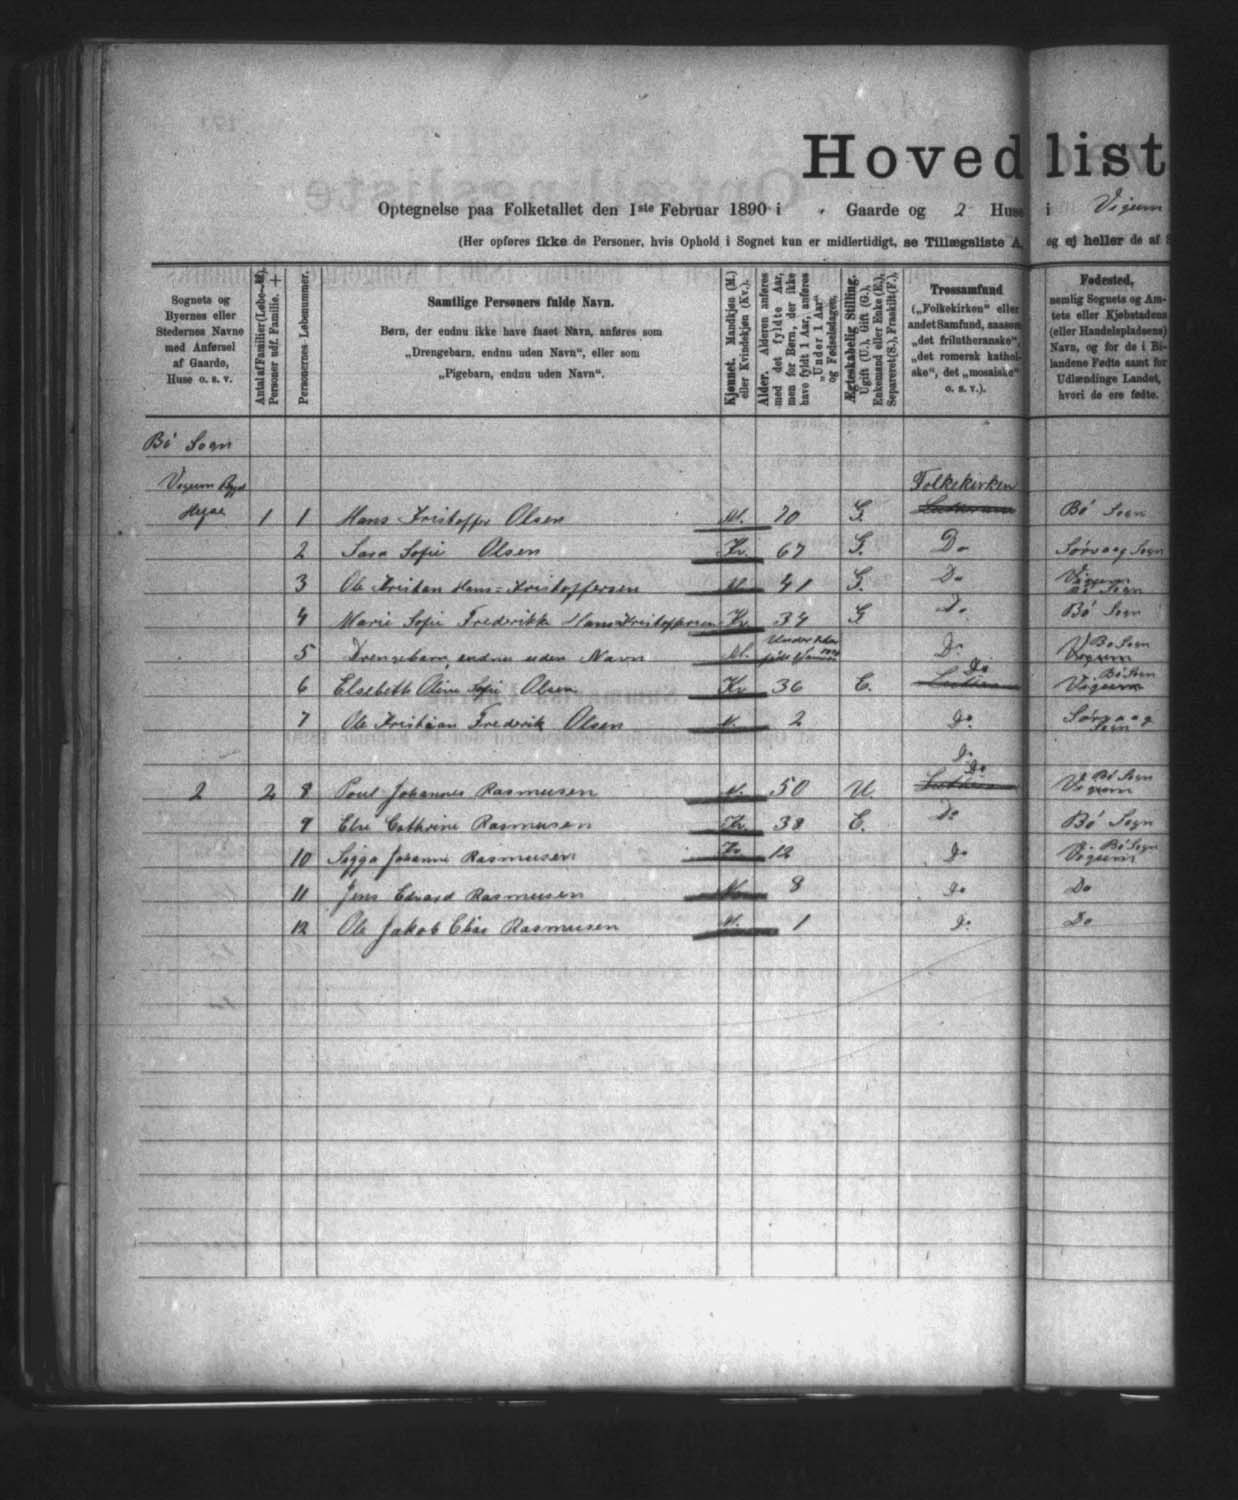 Hovedlist
Optegnelse paa Folketallet den 1ste Februar 1890 i " Gaarde og 2 Huse i Vigum
(Her opføres ikke de Personer, hvis Ophold i Sognet kun er midlertidigt, se Tillægsliste A, og ej heller de af
Sognets og Byernes eller Stedernes Navne med Anførsel af Gaarde, Huse o. s. v.
Antal af Familier (Løbe-№). Personer udf. Familie. +
Personernes Løbenummer.
Samtlige Personers fulde Navn.
Børn, der endnu ikke have faaet Navn, anføres som
„Drengebarn, endnu uden Navn“, eller som
„Pigebarn, endnu uden Navn“.
Kjønnet. Mandkjøn (M.) eller Kvindekjøn (Kv.).
Alder. Alderen anføres med det fyldte Aar, men for Børn, der ikke have fyldt 1 Aar, anføres „Under 1 Aar“ og Fødselsdagen.
Ægteskabelig Stilling. Ugift (U.), Gift (G.), Enkemand eller Enke (E.), Separeret (S.), Fraskilt (F.).
Trossamfund („Folkekirken“ eller andet Samfund, saasom „det frilutheranske“, „det romersk katholske“, det „mosaiske“ o. s. v.).
Fødested, nemlig Sognets og Amtets eller Kjøbstadens (eller Handelspladsens) Navn, og for de i Bilandene Fødte samt for Udlændinge Landet, hvori de ere fødte.
Bö Sogn
Vigum Bygd
Folkekirken
1 1 Hans Kristoffer Olsen M. 70 G. Bö Sogn
2 Sara Sofie Olsen Kv. 67 G. Do Sörvaag Sogn
3 Ole Kristian Hans=Kristoffersen M. 41 G. Do Vigum Bö Sogn
4 Marie Sofie Frederikke Hans=Kristoffersen Kv. 34 G Do Bö Sogn
5 Drengebarn, endnu uden Navn M. Under 1 Aar Do Vigum Bö Sogn
6 Elsebeth Oline Sofie Olsen Kv 36 E. Do Vigum Bö Sogn
7 Ole Kristian Frederik Olsen M. 2 Do Sörvaag Sogn
Do
2 2 8 Poul Johannes Rasmussen M. 50 U Do Vigum Bö Sogn
9 Else Cathrine Rasmussen Kv. 38 E. Do Bö Sogn
10 Sigga Johanne Rasmussen Kv 12 Do Vigum Bö Sogn
11 Jens Edvard Rasmussen M. 8 Do Do
12 Ole Jakob Rasmussen M. 1 Do Do